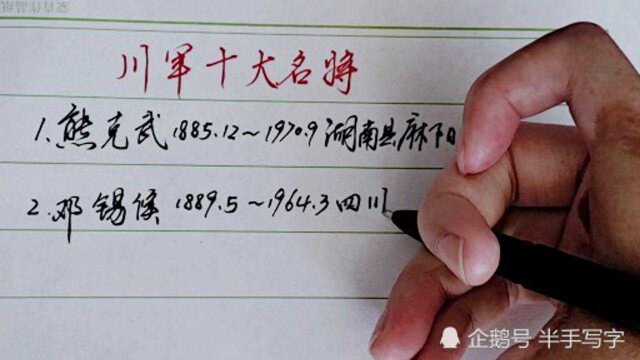 川军十大名将
1.熊克武 1885.12~1970.9 湖南县麻阳
2.邓锡侯 1889.5~1964.3 四川
企鹅号 半手写字